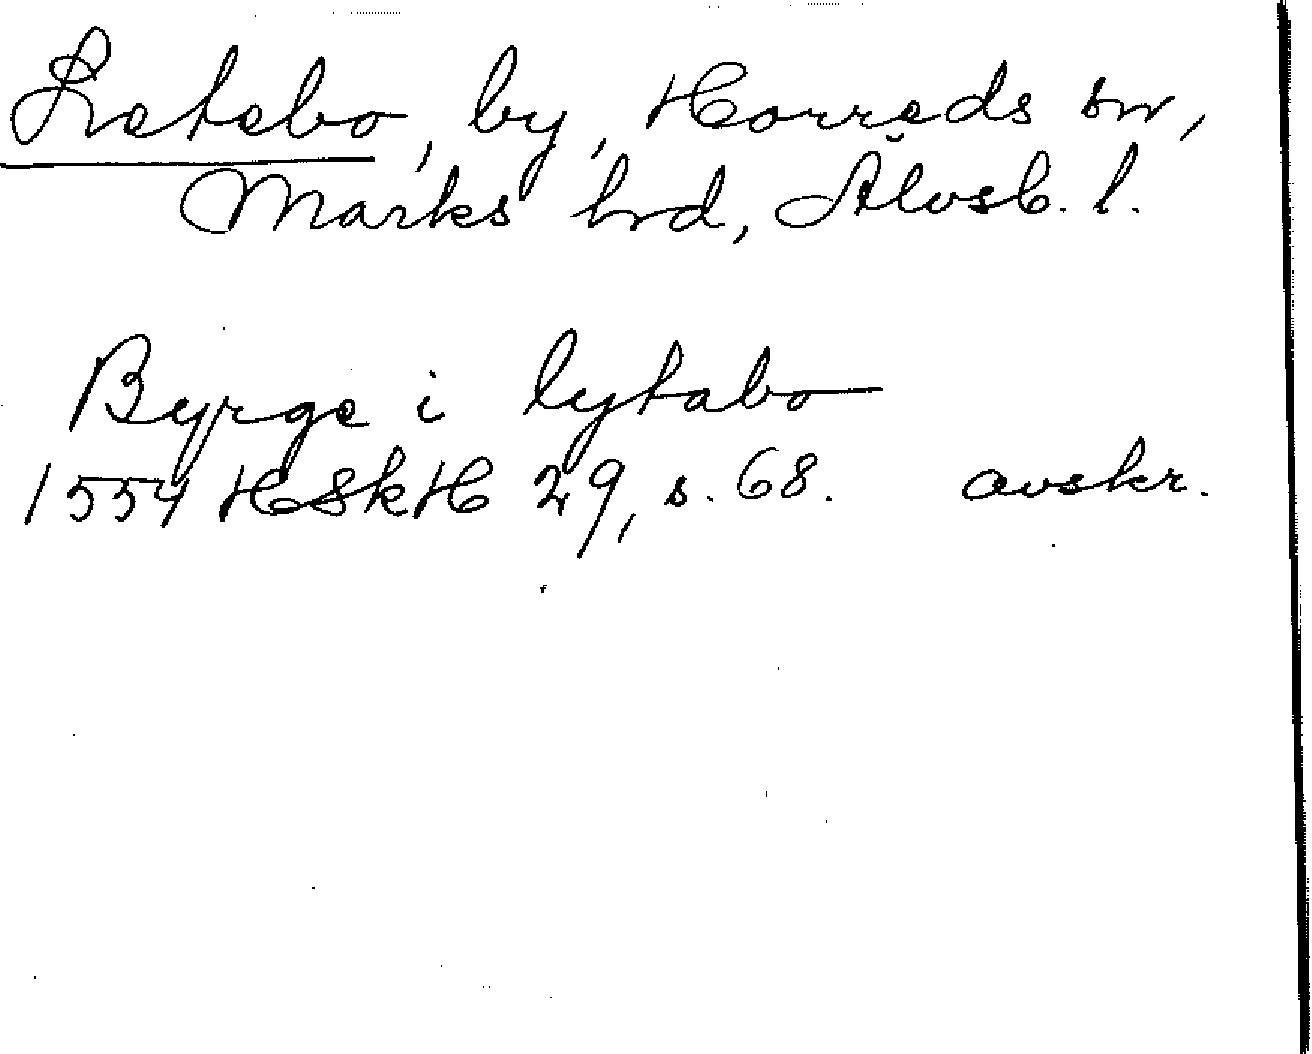 Letebo, by, Horreds sn,
Marks hrd, Älvsb. l.
Byrge i lytabo
1554 HSkH 29, s. 68. avskr.